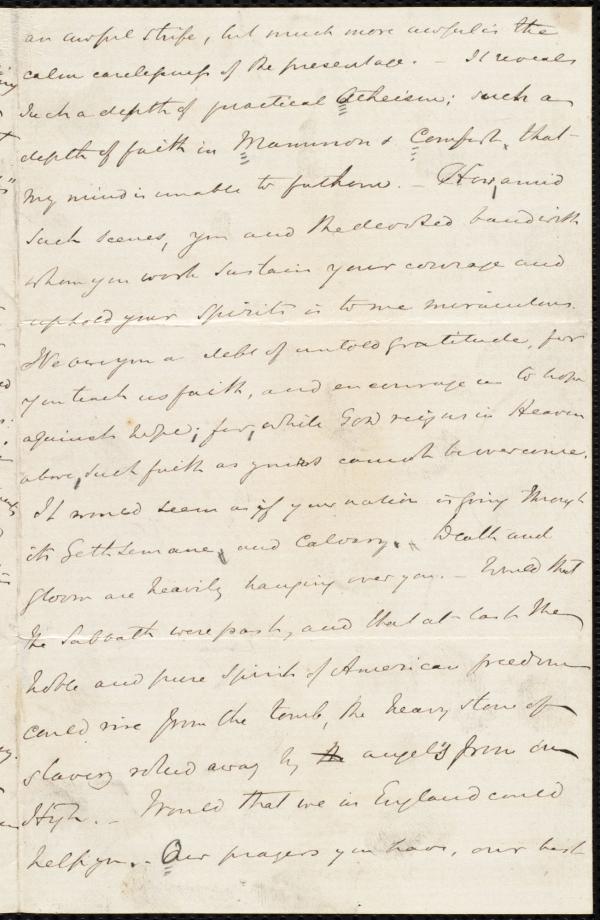 an awful strife, but much more awful is the
calm carelessness of the presentage. - It reveals
such a depth of practical Atheism; such a
depth of faith in Mammon & Comfort, that
my mind is unable to fathom. - How, amid
such scenes, you and the devoted band with
whom you work sustain your courage and
uphold your spirits is to me miraculous.
We owe you a debt of untold gratitude, for
you teach us faith, and encourage us to hope
against hope; for, while God reigns in Heaven
above, such faith as yours cannot be overcome.
It would seem as if your nation is going through
its Gethsemane, and Calvary. Death and
gloom are heavily hanging over you. - Would that
the Sabbath were past, and that at last the
noble and pure spirit of American freedom
could rise from the tomb, the heavy stone of
slavery rolled away by angels from on
High. - Would that we in England could
help you. - Our prayers you have, our best